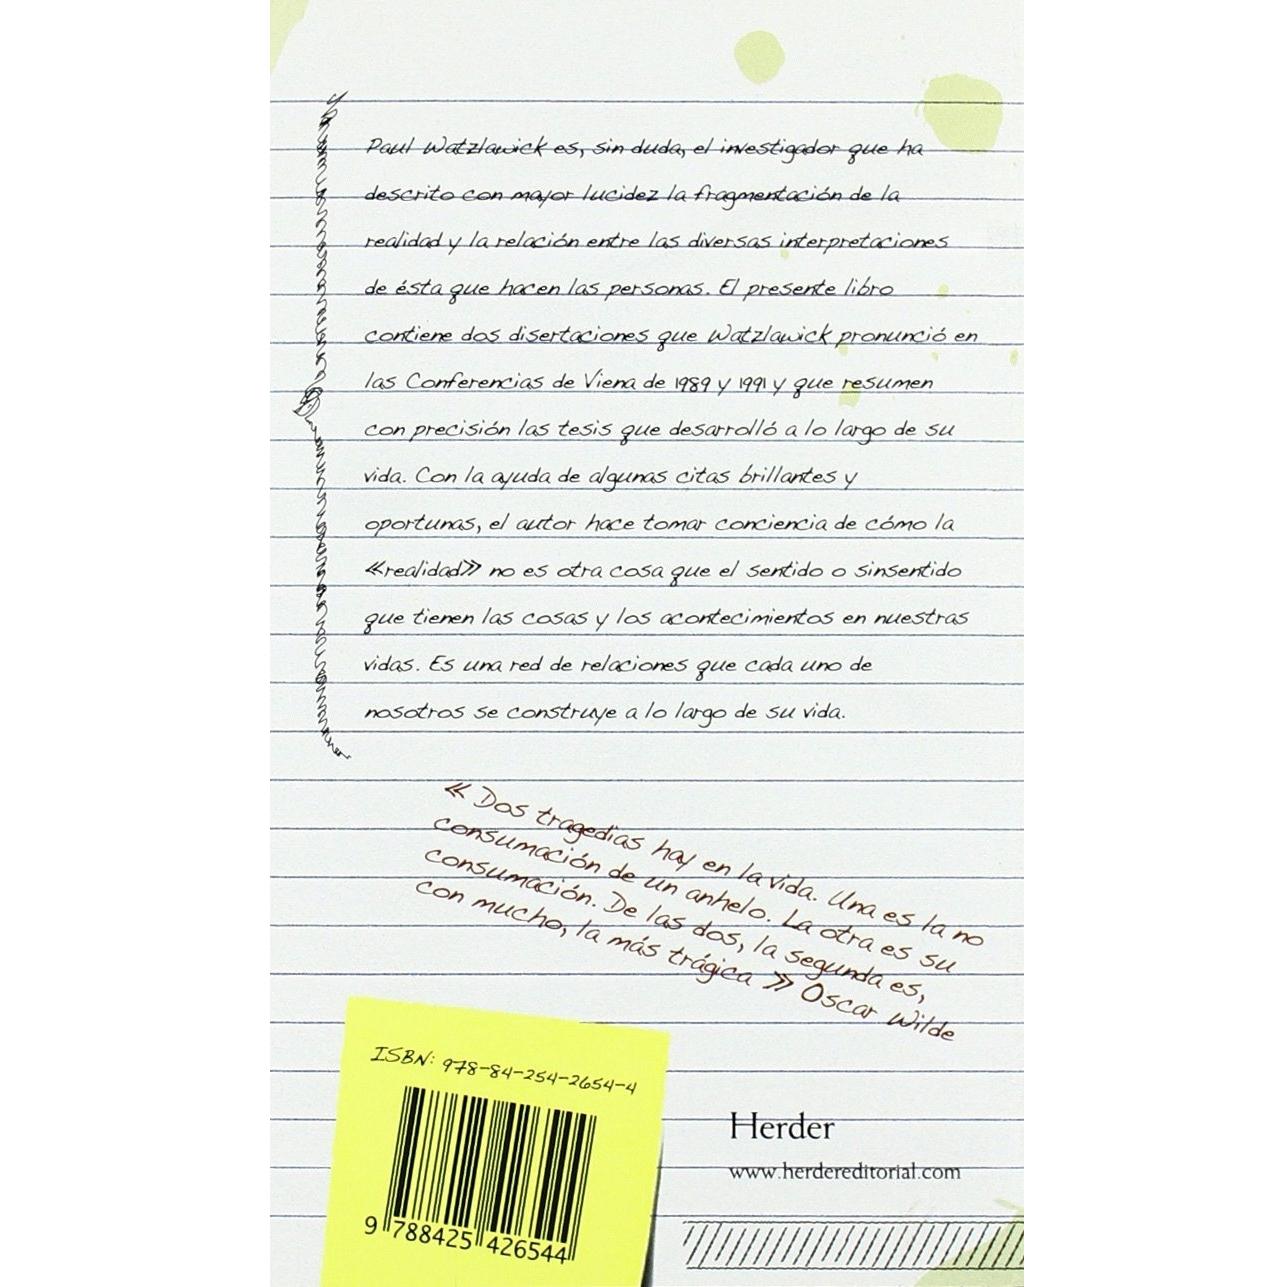 Paul Watzlawick es, sin duda, el investigador que ha
descrito con mayor lucidez la fragmentación de la
realidad y la relación entre las diversas interpretaciones
de ésta que hacen las personas. El presente libro
contiene dos disertaciones que Watzlawick pronunció en
las Conferencias de Viena de 1989 y 1991 y que resumen
con precisión las tesis que desarrolló a lo largo de su
vida. Con la ayuda de algunas citas brillantes y
oportunas, el autor hace tomar conciencia de cómo la
«realidad» no es otra cosa que el sentido o sinsentido
que tienen las cosas y los acontecimientos en nuestras
vidas. Es una red de relaciones que cada uno de
nosotros se construye a lo largo de su vida.
« Dos tragedias hay en la vida. Una es la no
consumación de un anhelo. La otra es su
consumación. De las dos, la segunda es,
con mucho, la más trágica » Oscar Wilde
ISBN: 978-84-254-2654-4
9 788425 426544
Herder
www.herdereditorial.com